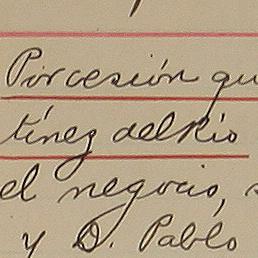 Porcesión qu
tínez del Rio
el negocio, s
y D. Pablo